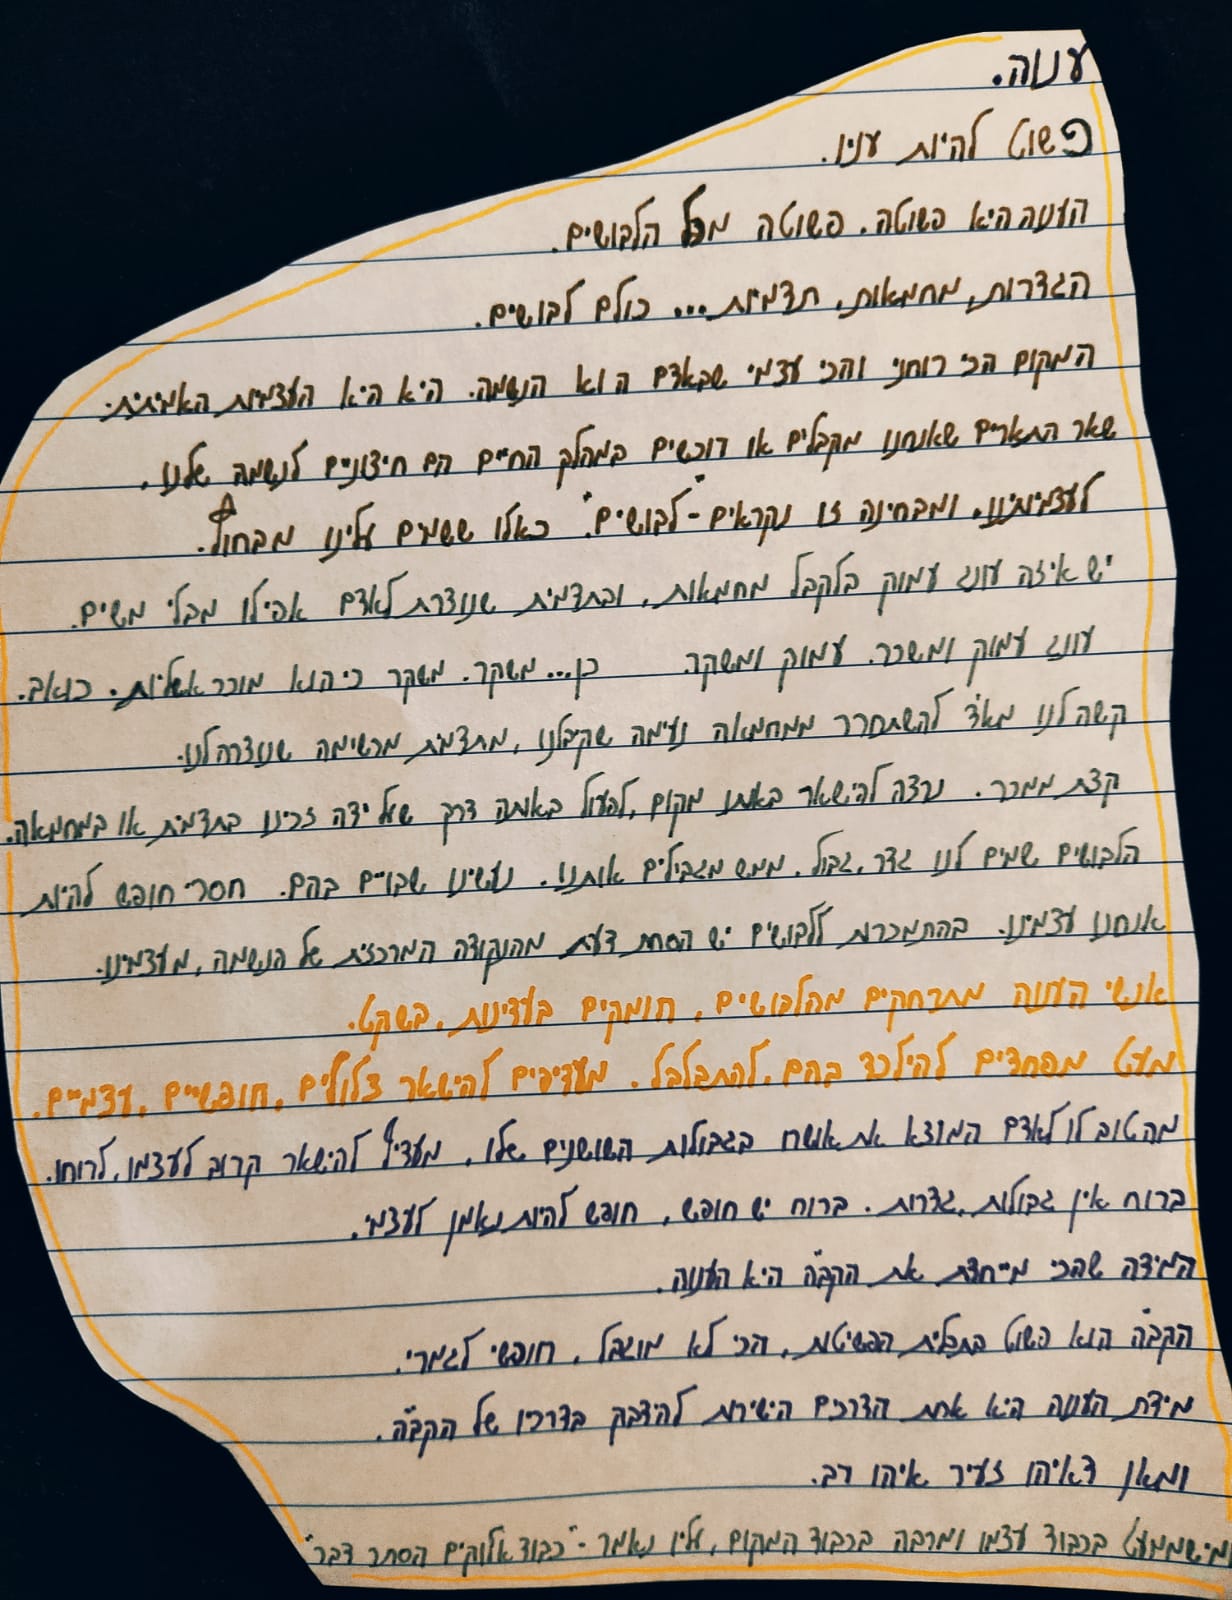 ענוה.
פשוט להיות עניו.
הענוה היא פשוטה. פשוטה מכל הלבושים.
הגדרות, מחמאות, תדמיות... כולם לבושים.
המקום הכי רוחני והכי עצמי שבאדם הוא הנשמה. היא היא העצמיות האמיתית.
שאר התארים שאנחנו מקבלים או רוכשים במהלך החיים הם חיצוניים לנשמה שלנו,
לעצמיותינו, ומבחינה זו נקראים - "לבושים". כאלו ששמים עלינו מבחוץ.
יש איזה עונג עמוק בלקבל מחמאות, ובתדמית שנוצרת לאדם אפילו מבלי משים.
עונג עמוק ומשכר. עמוק ומשקר. כן... משקר. משקר כי הוא מוכר אשליות. כואב.
קשה לנו מאד להשתחרר ממחמאה נעימה שקיבלנו, מתדמית מרשימה שנוצרה לנו.
קצת ממכר. נרצה להישאר באותו מקום, לפעול באותה דרך שעל ידה זכינו בתדמית או במחמאה.
הלבושים שמים לנו גדר, גבול. ממש מגבילים אותנו. נעשינו שבויים בהם. חסרי חופש להיות
אנחנו עצמינו. בהתמכרות ללבושים יש הסחת דעת מהנקודה המרכזית של הנשמה, מעצמינו.
אנשי הענוה מתרחקים מהלבושים, חומקים בעדינות, בשקט.
מעט מפחדים להילכד בהם, להתבלבל. מעדיפים להישאר צלולים, חופשיים, עצמיים.
מה טוב לו לאדם המוצא את אושרו בגבולות השושנים שלו, מעדיף להישאר קרוב לעצמו, לרוחו.
ברוח אין גבולות, גדרות. ברוח יש חופש, חופש להיות נאמן לעצמי.
המידה שהכי מייחדת את הקב"ה היא הענוה.
הקב"ה הוא פשוט בתכלית הפשיטות, הכי לא מוגבל, חופשי לגמרי.
מידת הענוה היא אחת הדרכים הישירות להידבק בדרכיו של הקב"ה.
ומאן דאיהו זעיר איהו רב.
ומי שממעט בכבוד עצמו ומרבה בכבוד המקום, עליו נאמר - "כבוד אלוקים הסתר דבר"